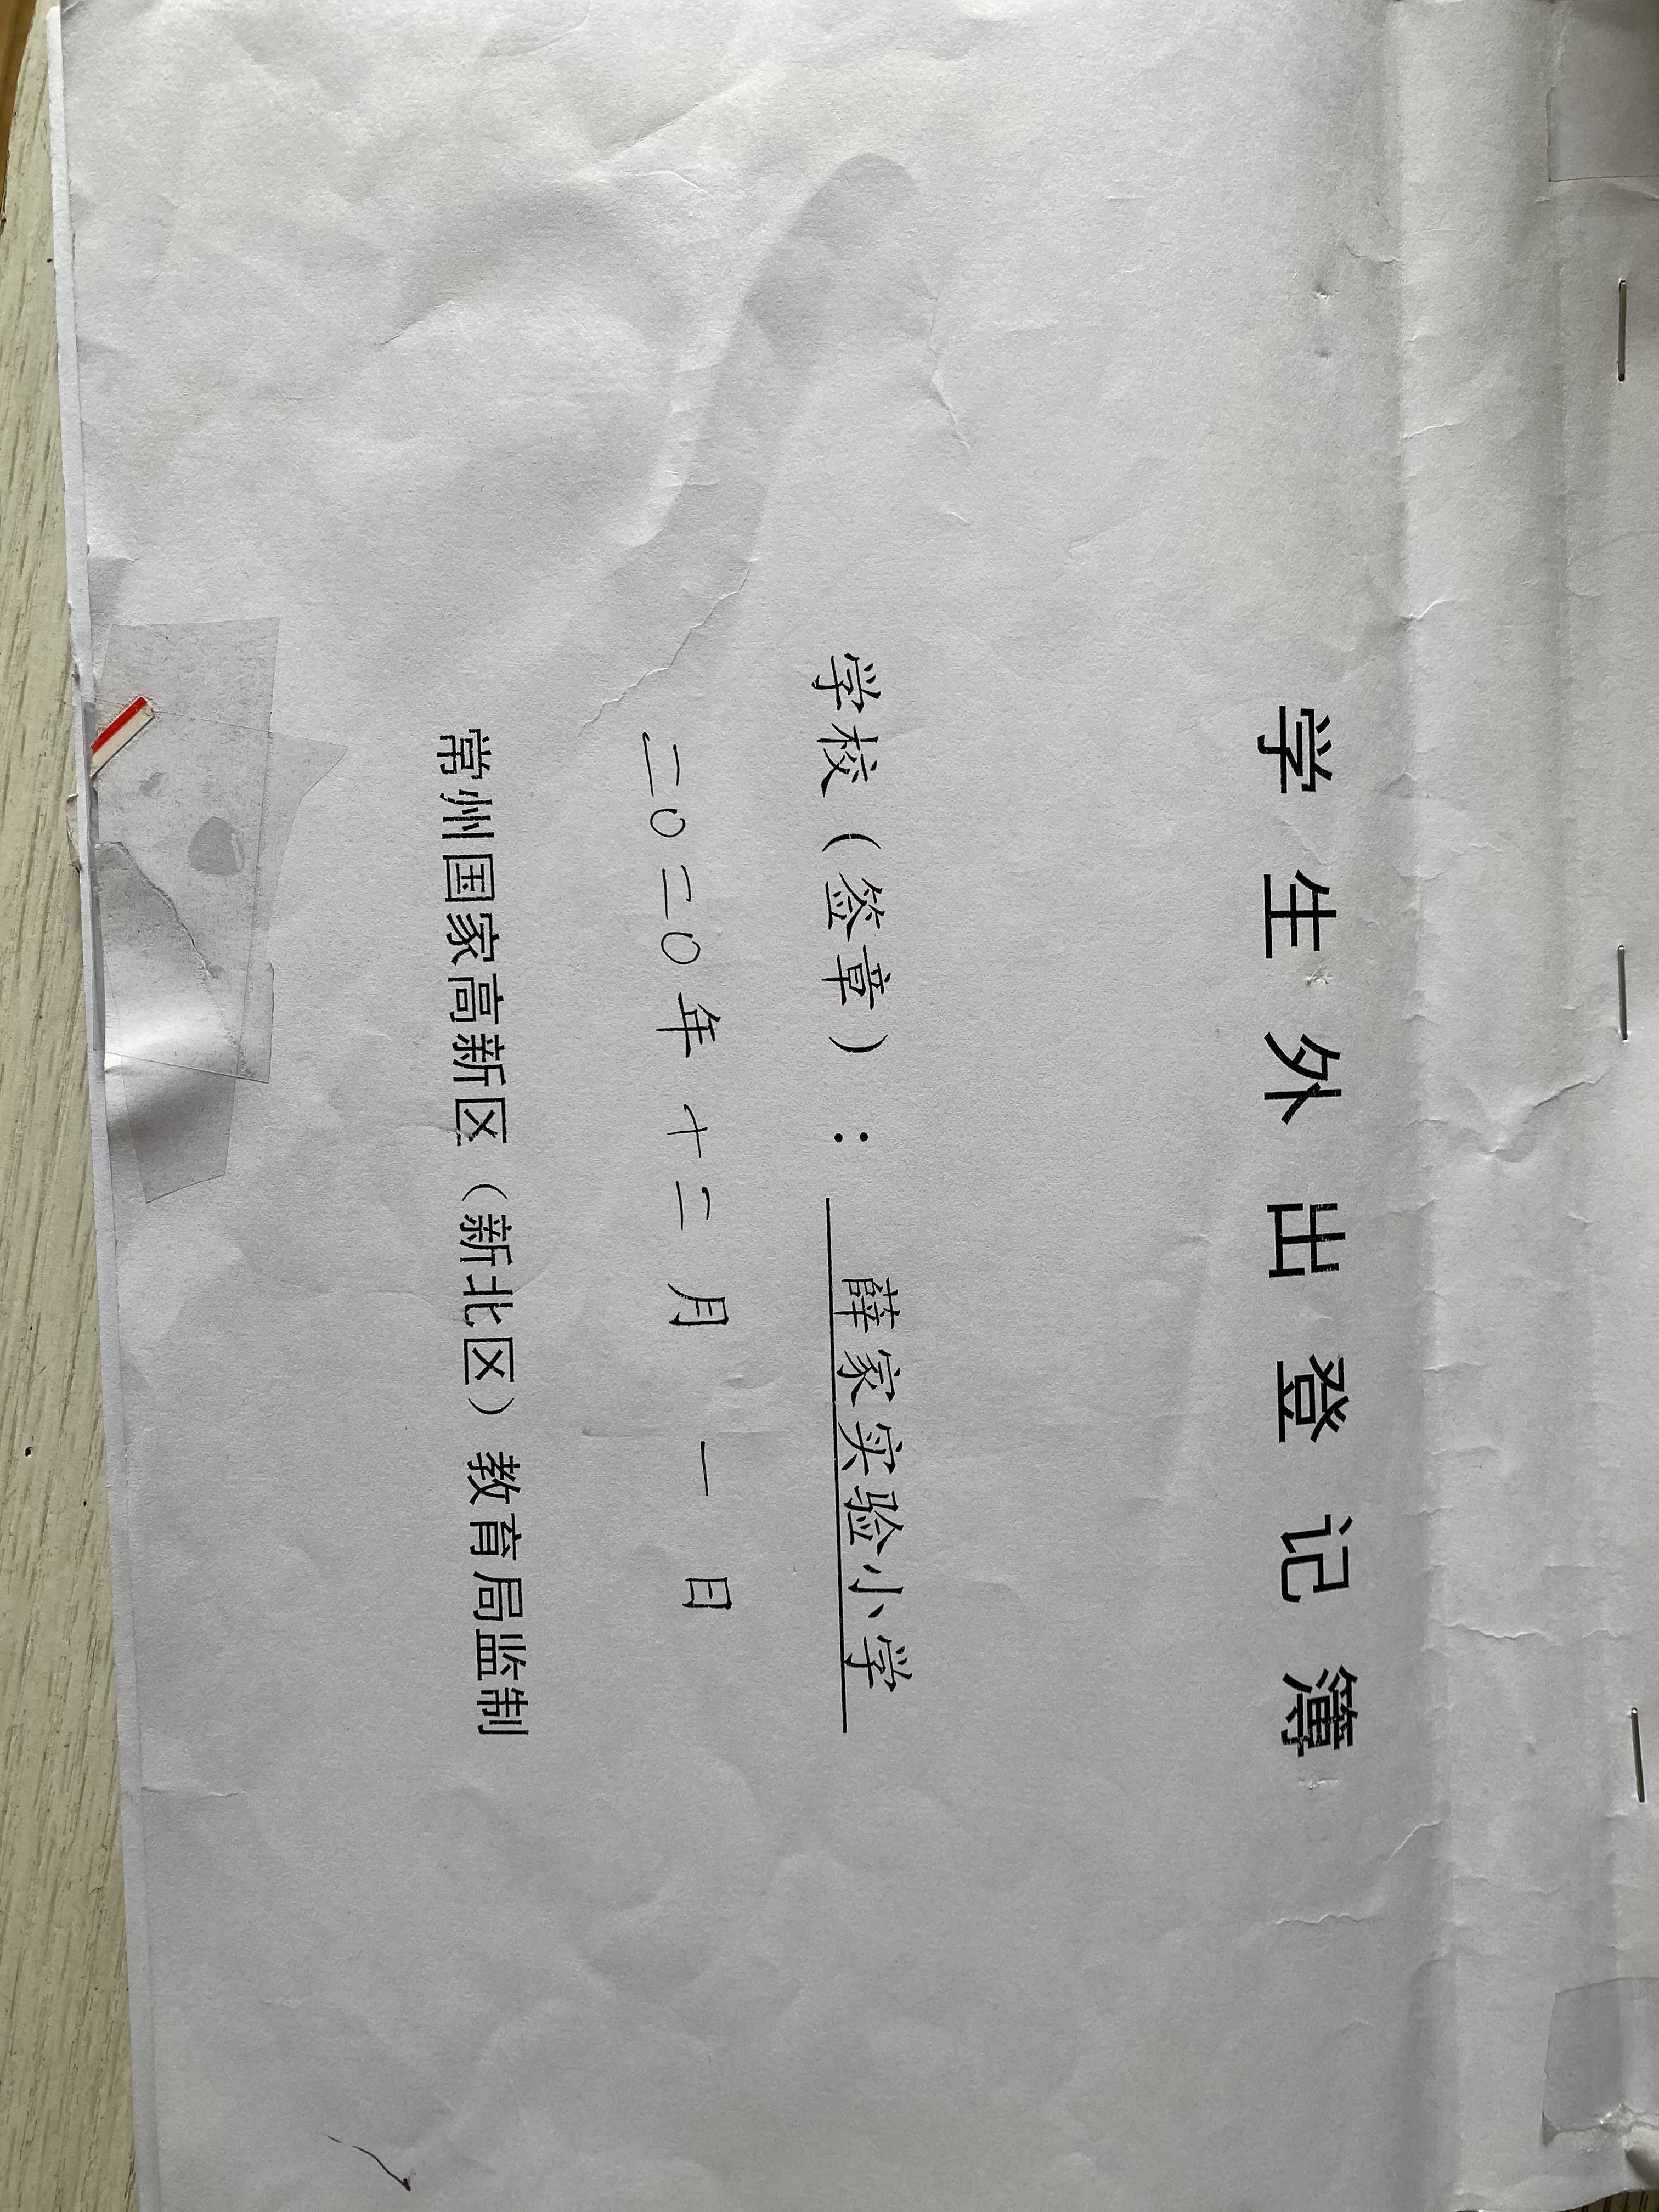 学生外出登记簿
学校（签章）：薛家实验小学
二〇二〇年十二月一日
常州国家高新区（新北区）教育局监制